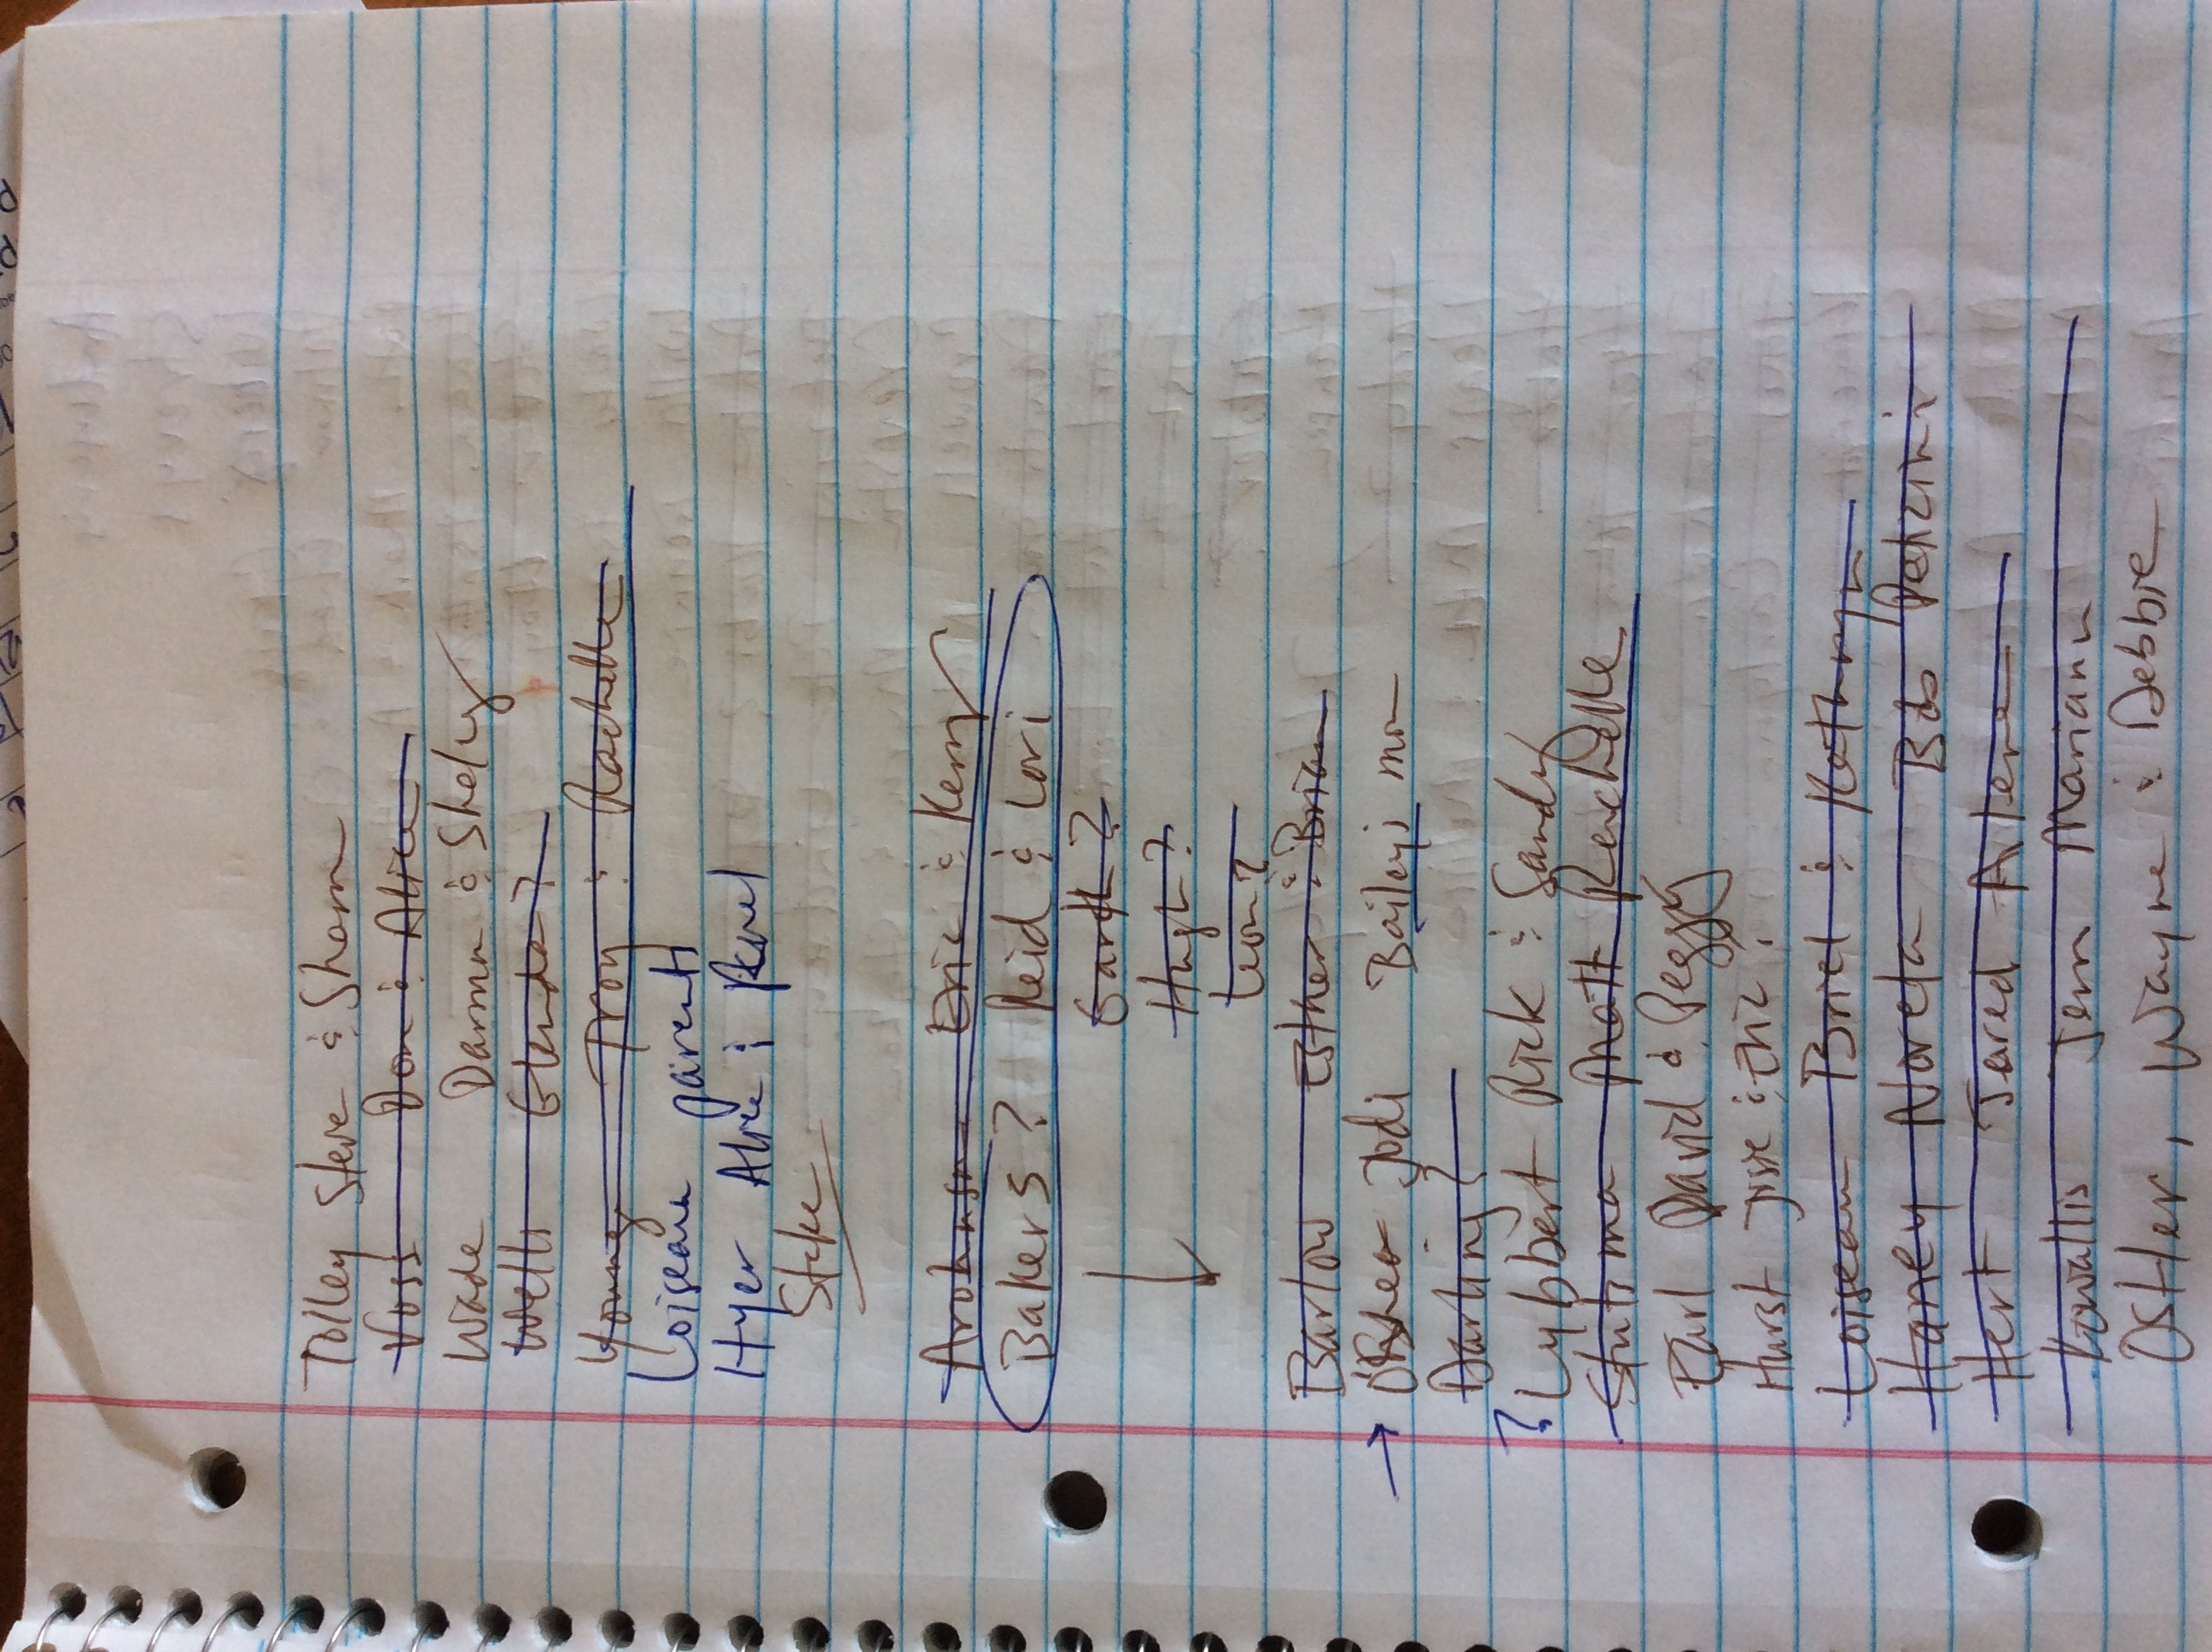 Tolley Steve & Sharon
Voss Don & Alice
Wade Darron & Shelly
Wells Glenda?
Young Troy & Rachelle
Loiseau parents
Hyer Alice &
Stake
Eric & Kerry
Bakers? Reid & Lori
Garth?
Hugh?
Leon?
Barlow Esther & Brian
O'Shea Jodi Bailey's mom
Darling?
? Lybbert Rick & Sandy
Stutsman Matt Rachelle
Earl David & Peggy
Hurst Josie & Eric?
Loiseau Briel & Kathryn
Haney Noreta Bob
Hert Jared
Kowallis Jerry Mariann
Ostler, Wayne & Debbie